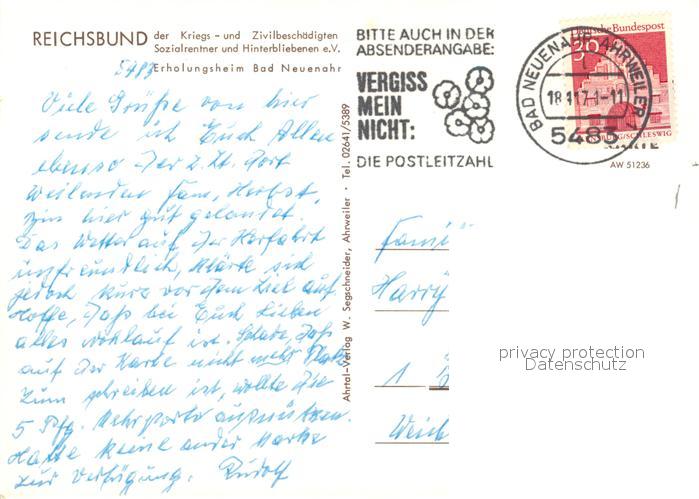 REICHSBUND der Kriegs- und Zivilbeschädigten
Sozialrentner und Hinterbliebenen e.V.
5483 Erholungsheim Bad Neuenahr
Viele Grüße von hier
sende ich Euch Allen
ebenso der z. Zt. dort
weilenden Fam. Herbst,
bin hier gut gelandet.
Das Wetter auf der Herfahrt
unfreundlich, klärte sich
jedoch kurz vor dem Ziel auf.
Hoffe, daß bei Euch Lieben
alles wohlauf ist. Schade, daß
auf der Karte nicht mehr Platz
zum schreiben ist, wollte die
5 Pfg. Mehrporto ausnützen.
Hatte keine ander Marke
zur Verfügung. Rudolf
Ahrtal-Verlag W. Segschneider, Ahrweiler · Tel. 02641/5389
BITTE AUCH IN DER
ABSENDERANGABE:
VERGISS
MEIN
NICHT:
DIE POSTLEITZAHL
BAD NEUENAHR-AHRWEILER
18.11.71-11
5483
Deutsche Bundespost
30
FLENSBURG/SCHLESWIG
AW 51236
Fami
Harry
1
Weich
privacy protection
Datenschutz